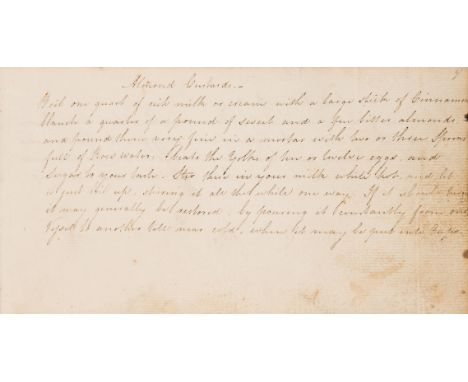 Almond Custards.
Boil one quart of rich milk or cream with a large stick of Cinnamon
blanch a quarter of a pound of sweet and a few bitter almonds
and pound them very fine in a mortar with two or three spoons
full of Rose water. beat the yolks of ten or twelve eggs, and
Sugar to your taste. Stir this in your milk while hot, and let
it just boil up, stirring it all the while one way. If it should
it may generally be restored, by pouring it constantly from one
to another till near cold, when it may be put into Cups.